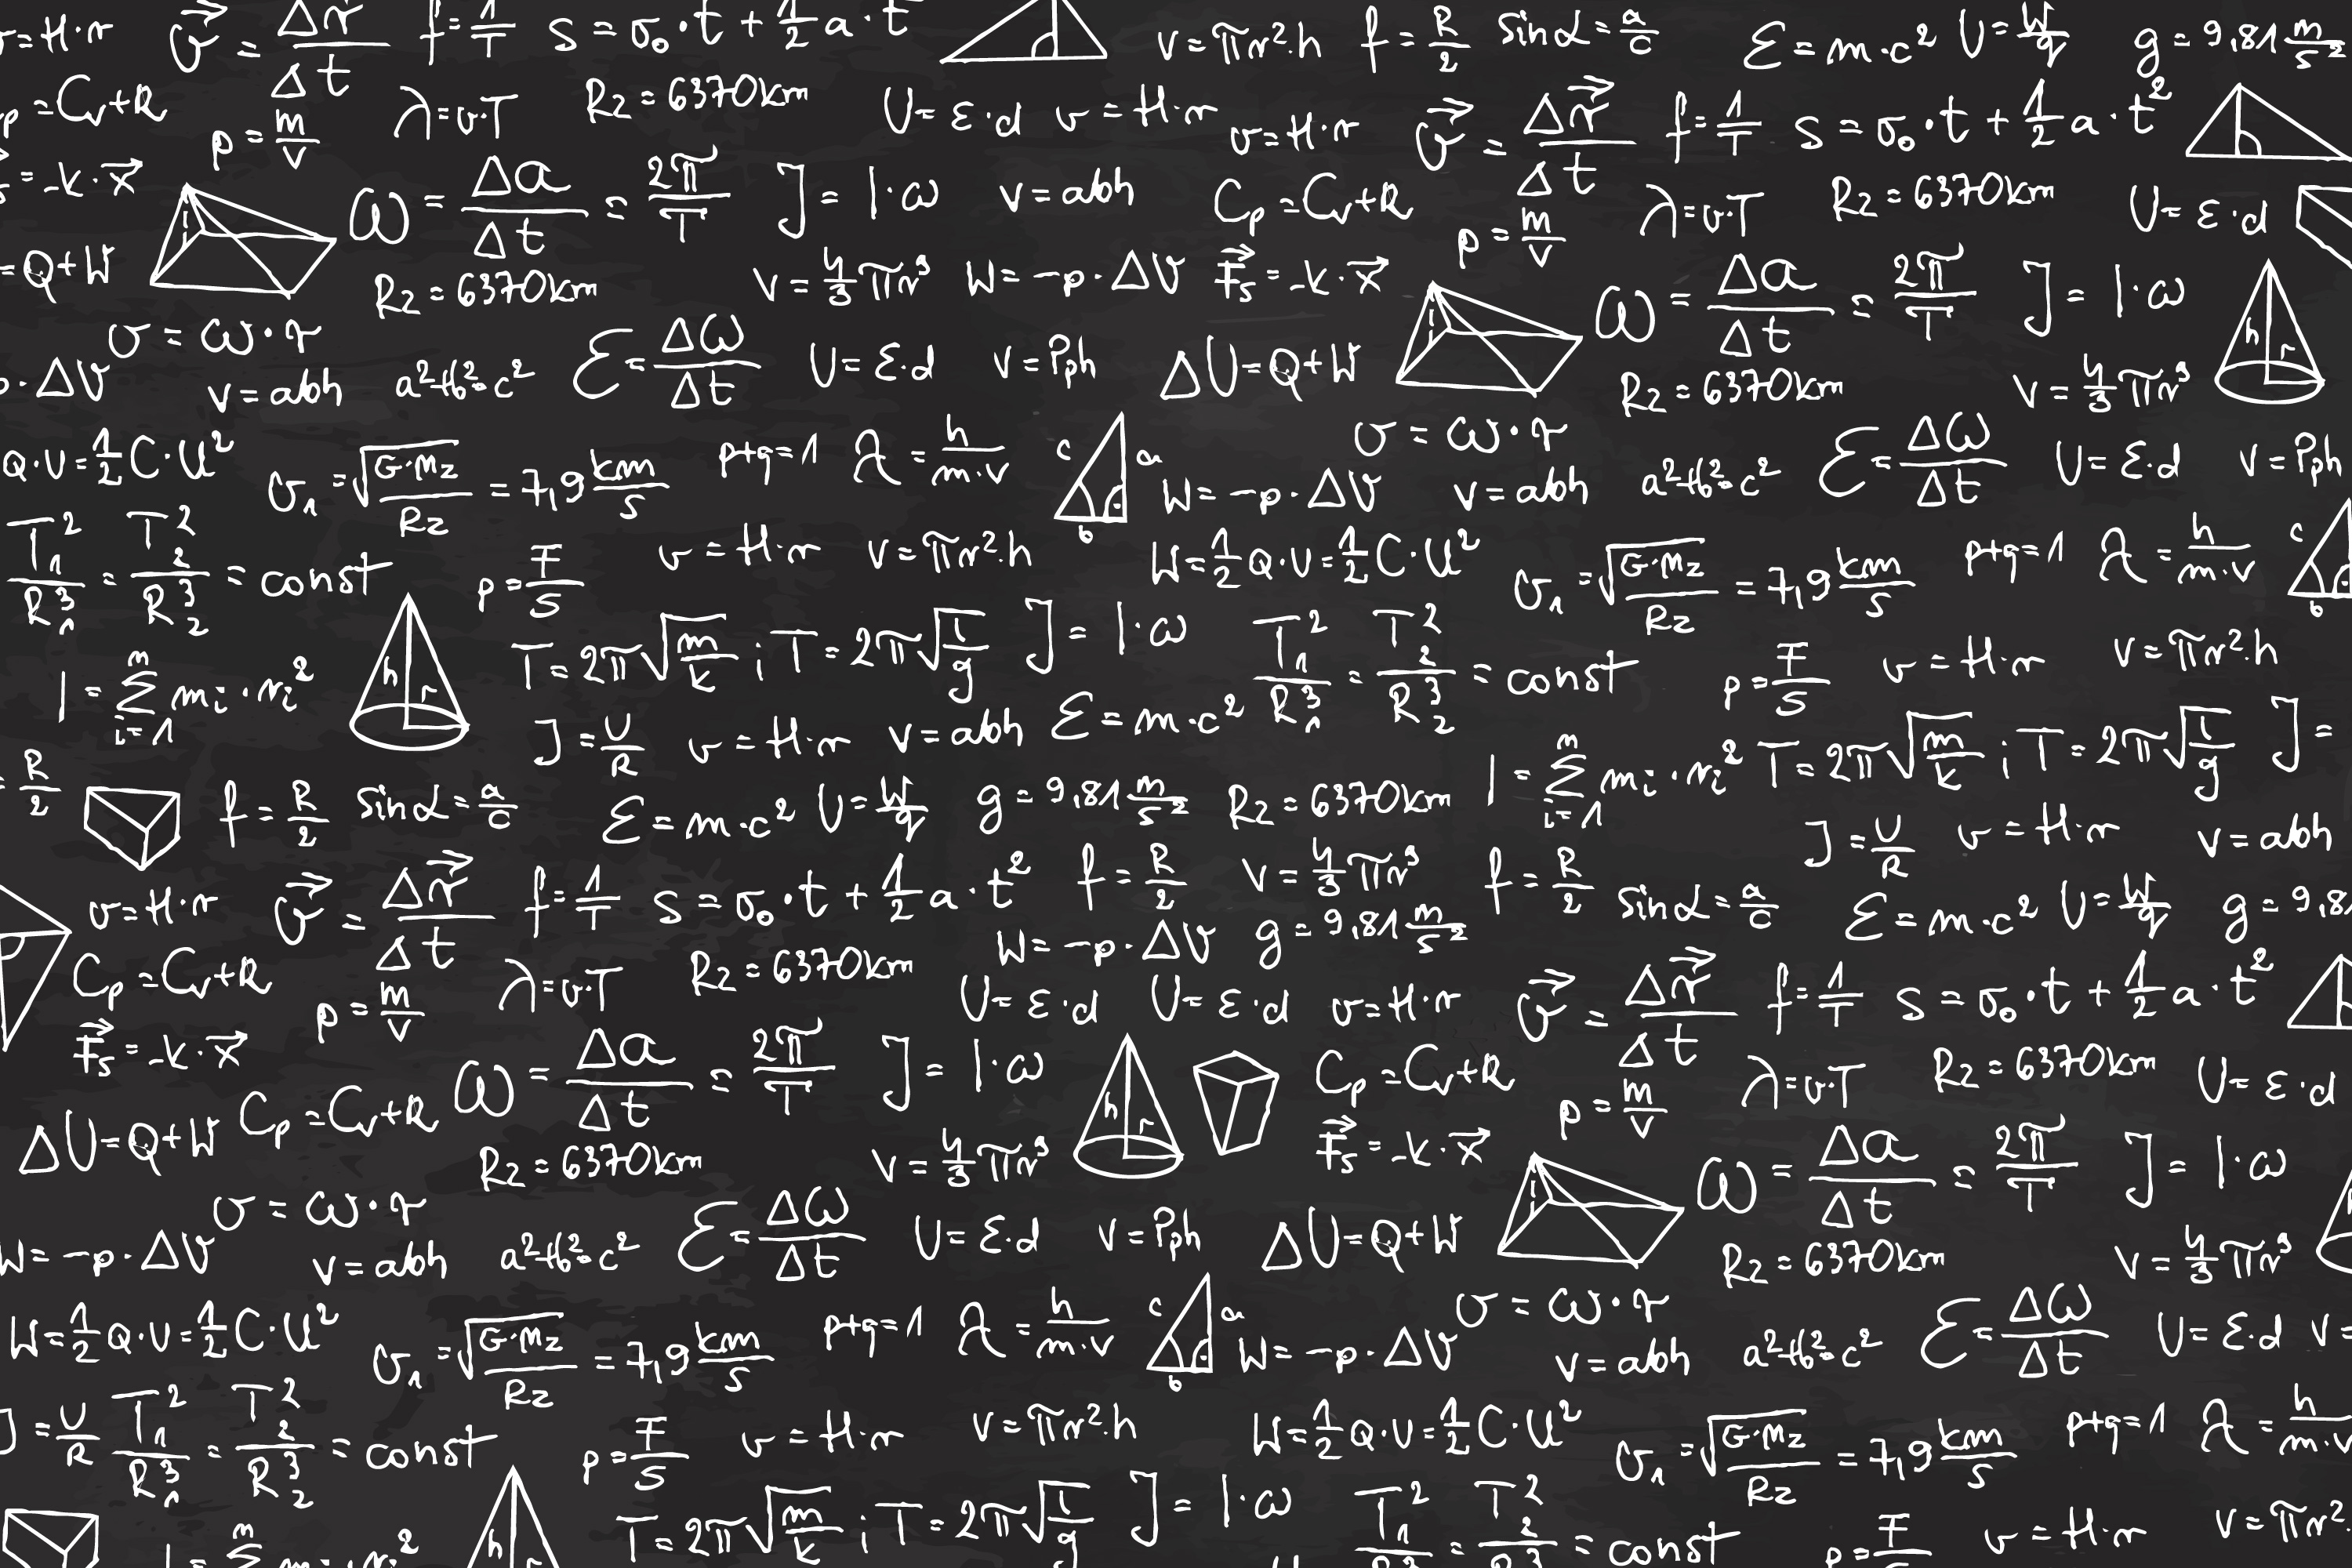 σ=H·r v⃗ = Δr/Δt f=1/T s=σ₀·t+1/2a·t v=πr²·h f=R/2 sinα=a/c Ɛ=m·c² U=W/q g=9,81 m/s²
p=Cv+R p=m/v λ=v·T Rz=6370km U=Ɛ·d v=H·r σ=H·r v⃗=Δr⃗/Δt f=1/T s=σ₀·t+1/2a·t²
s=-k·x⃗ ω=Δa/Δt=2π/T J=I·ω v=abh Cp=Cv+R p=m/v λ=v·T Rz=6370km U=Ɛ·d
=Q+W Rz=6370km v=4/3πr³ W=-p·ΔV F⃗s=-k·x⃗ ω=Δa/Δt=2π/T J=I·ω h r
σ=ω·r
p·ΔV v=abh a²+b²=c² Ɛ=Δω/Δt U=Ɛ·d v=Pph ΔU=Q+W Rz=6370km v=4/3πr³
Q·U=1/2C·U² σ₁=√(G·Mz/Rz)=7,9km/s p+q=1 λ=h/m·v c a b σ=ω·r W=-p·ΔV v=abh a²+b²=c² Ɛ=Δω/Δt U=Ɛ·d v=Pph
T₁²/R₁³=T₂²/R₂³=const p=F/S v=H·r v=πr²·h W=1/2Q·U=1/2C·U² σ₁=√(G·Mz/Rz)=7,9km/s p+q=1 λ=h/m·v c b
I=Σmi·ri² i=1 n h r T=2π√(m/k);T=2π√(l/g) J=I·ω T₁²/R₁³=T₂²/R₂³=const p=F/S v=H·r v=πr²·h
J=U/R v=H·r v=abh Ɛ=m·c² I=Σmi·ri² i=1 n T=2π√(m/k);T=2π√(l/g) J=
=R/2 f=R/2 sinα=a/c Ɛ=m·c² U=W/q g=9,81m/s² Rz=6370km J=U/R v=H·r v=abh
σ=H·r v⃗=Δr⃗/Δt f=1/T s=σ₀·t+1/2a·t² f=R/2 v=4/3πr³ f=R/2 sinα=a/c Ɛ=m·c² U=W/q g=9,8
Cp=Cv+R p=m/v λ=v·T Rz=6370km W=-p·ΔV g=9,81m/s²
F⃗s=-k·x⃗ U=Ɛ·d U=Ɛ·d σ=H·r v⃗=Δr⃗/Δt f=1/T s=σ₀·t+1/2a·t²
ω=Δa/Δt=2π/T J=I·ω h r Cp=Cv+R p=m/v λ=v·T Rz=6370km U=Ɛ·d
ΔU=Q+W Cp=Cv+R Rz=6370km v=4/3πr³ F⃗s=-k·x⃗ ω=Δa/Δt=2π/T J=I·ω
σ=ω·r
W=-p·ΔV v=abh a²+b²=c² Ɛ=Δω/Δt U=Ɛ·d v=Pph ΔU=Q+W Rz=6370km v=4/3πr³
W=1/2Q·U=1/2C·U² σ₁=√(G·Mz/Rz)=7,9km/s p+q=1 λ=h/m·v c a b σ=ω·r W=-p·ΔV v=abh a²+b²=c² Ɛ=Δω/Δt U=Ɛ·d v=
J=U/R T₁²/R₁³=T₂²/R₂³=const p=F/S v=H·r v=πr²·h W=1/2Q·U=1/2C·U² σ₁=√(G·Mz/Rz)=7,9km/s p+q=1 λ=h/m·v
n h T=2π√(m/k);T=2π√(l/g) J=I·ω T₁²=T₂²=const p=F v=H·r v=πr²